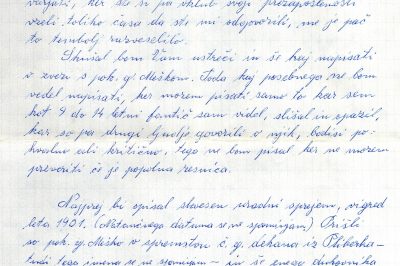 verjati, ker se ni pa vkljub svoji prezaposlenosti
vzeli toliko časa da ste mi odgovorili, me je pač
to tembolj razveselilo.
Skušal bom Vam ustreči in še kaj napisati
v zvezi s pok. g. Meškom. Toda kaj posebnega ne bom
vedel napisati, ker morem pisati samo to kar sem
kot 9 do 14 letni fantič sam videl, slišal in opazil,
kar so pa drugi ljudje govorili o njih, bodisi po-
hvalno ali kritično, tega ne bom pisal ker ne morem
preveriti če je popolna resnica.
Najprej bi opisal slovesen uradni sprejem, vigred
leta 1901. (Natančnega datuma se ne spominjam.) Prišli
so pok. g. Meško v spremstvu č. g. dekana iz Pliberka-
tudi tega imena se ne spominjam - in še enega duhovnika